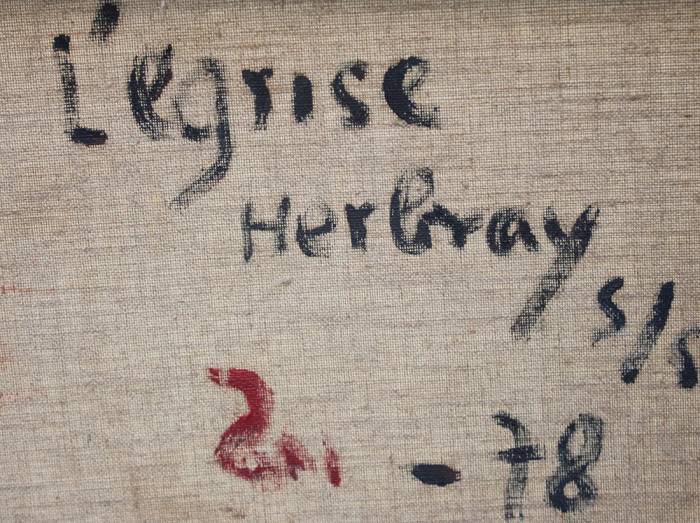 L'égrise
Herbray
s/s
- 78